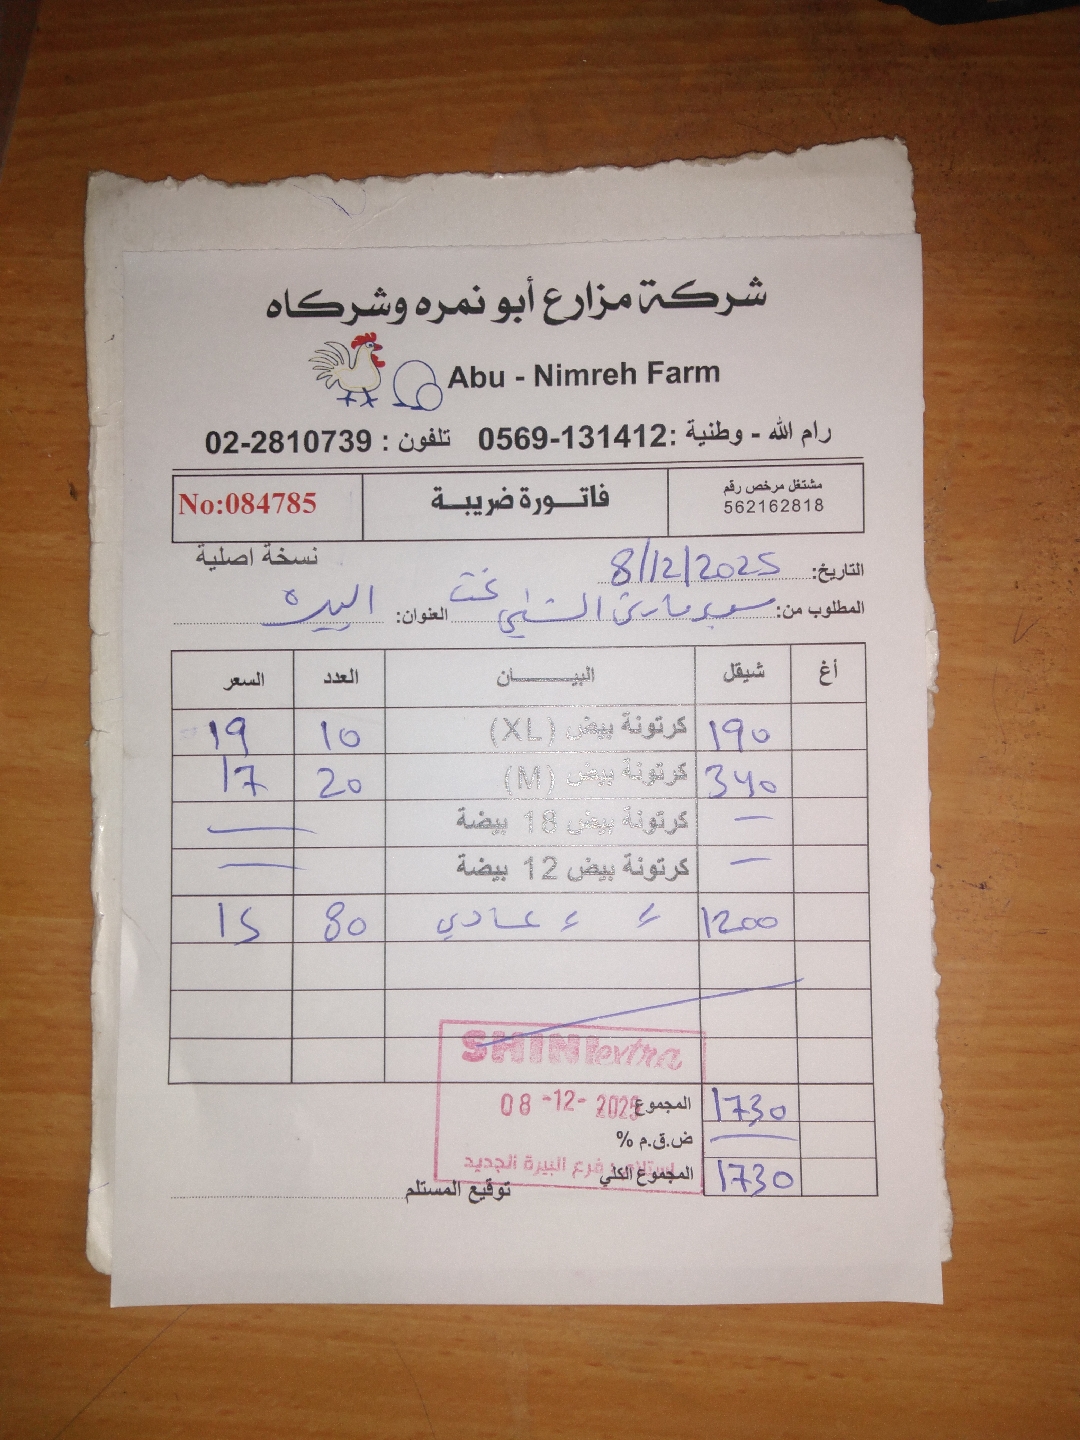 شركة مزارع أبو نمره وشركاه
Abu - Nimreh Farm
رام الله - وطنية :0569-131412 تلفون : 02-2810739
مشتغل مرخص رقم
562162818
فاتورة ضريبة
No:084785
نسخة اصلية
التاريخ: 8/12/2025
المطلوب من: سوبرماركت العنوان: البيره
أغ شيقل البيان العدد السعر
190 كرتونة بيض (XL) 10 19
340 كرتونة بيض (M) 20 17
— كرتونة بيض 18 بيضة —
— كرتونة بيض 12 بيضة —
1200 ء ء عادي 80 15
SHINI extra
المجموع 1730
08 -12- 2025
ض.ق.م % —
المجموع الكلي 1730
استلام : فرع البيرة الجديد
توقيع المستلم